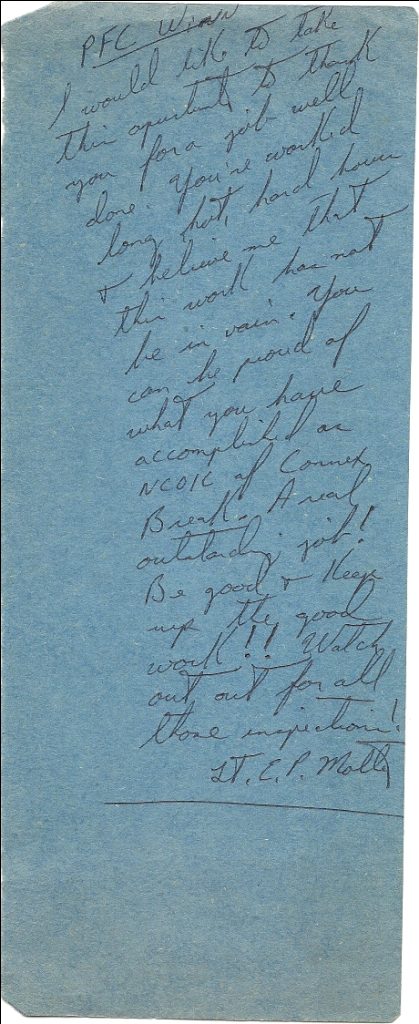 PFC Winn
I would like to take
this oportunity to thank
you for a job well
done. You're worked
long, hot, hard hours
& believe me that
this work has not
be in vain. You
can be proud of
what you have
accomplished as
NCOIC of Connex
Break. A real
outstanding job!
Be good & Keep
up the good
work!! Watch
out out for all
those inspections!
Lt. E. P.